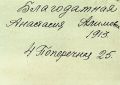 Благодатная
Анастасия Акимовна
1913.
4 Поперечн 25.